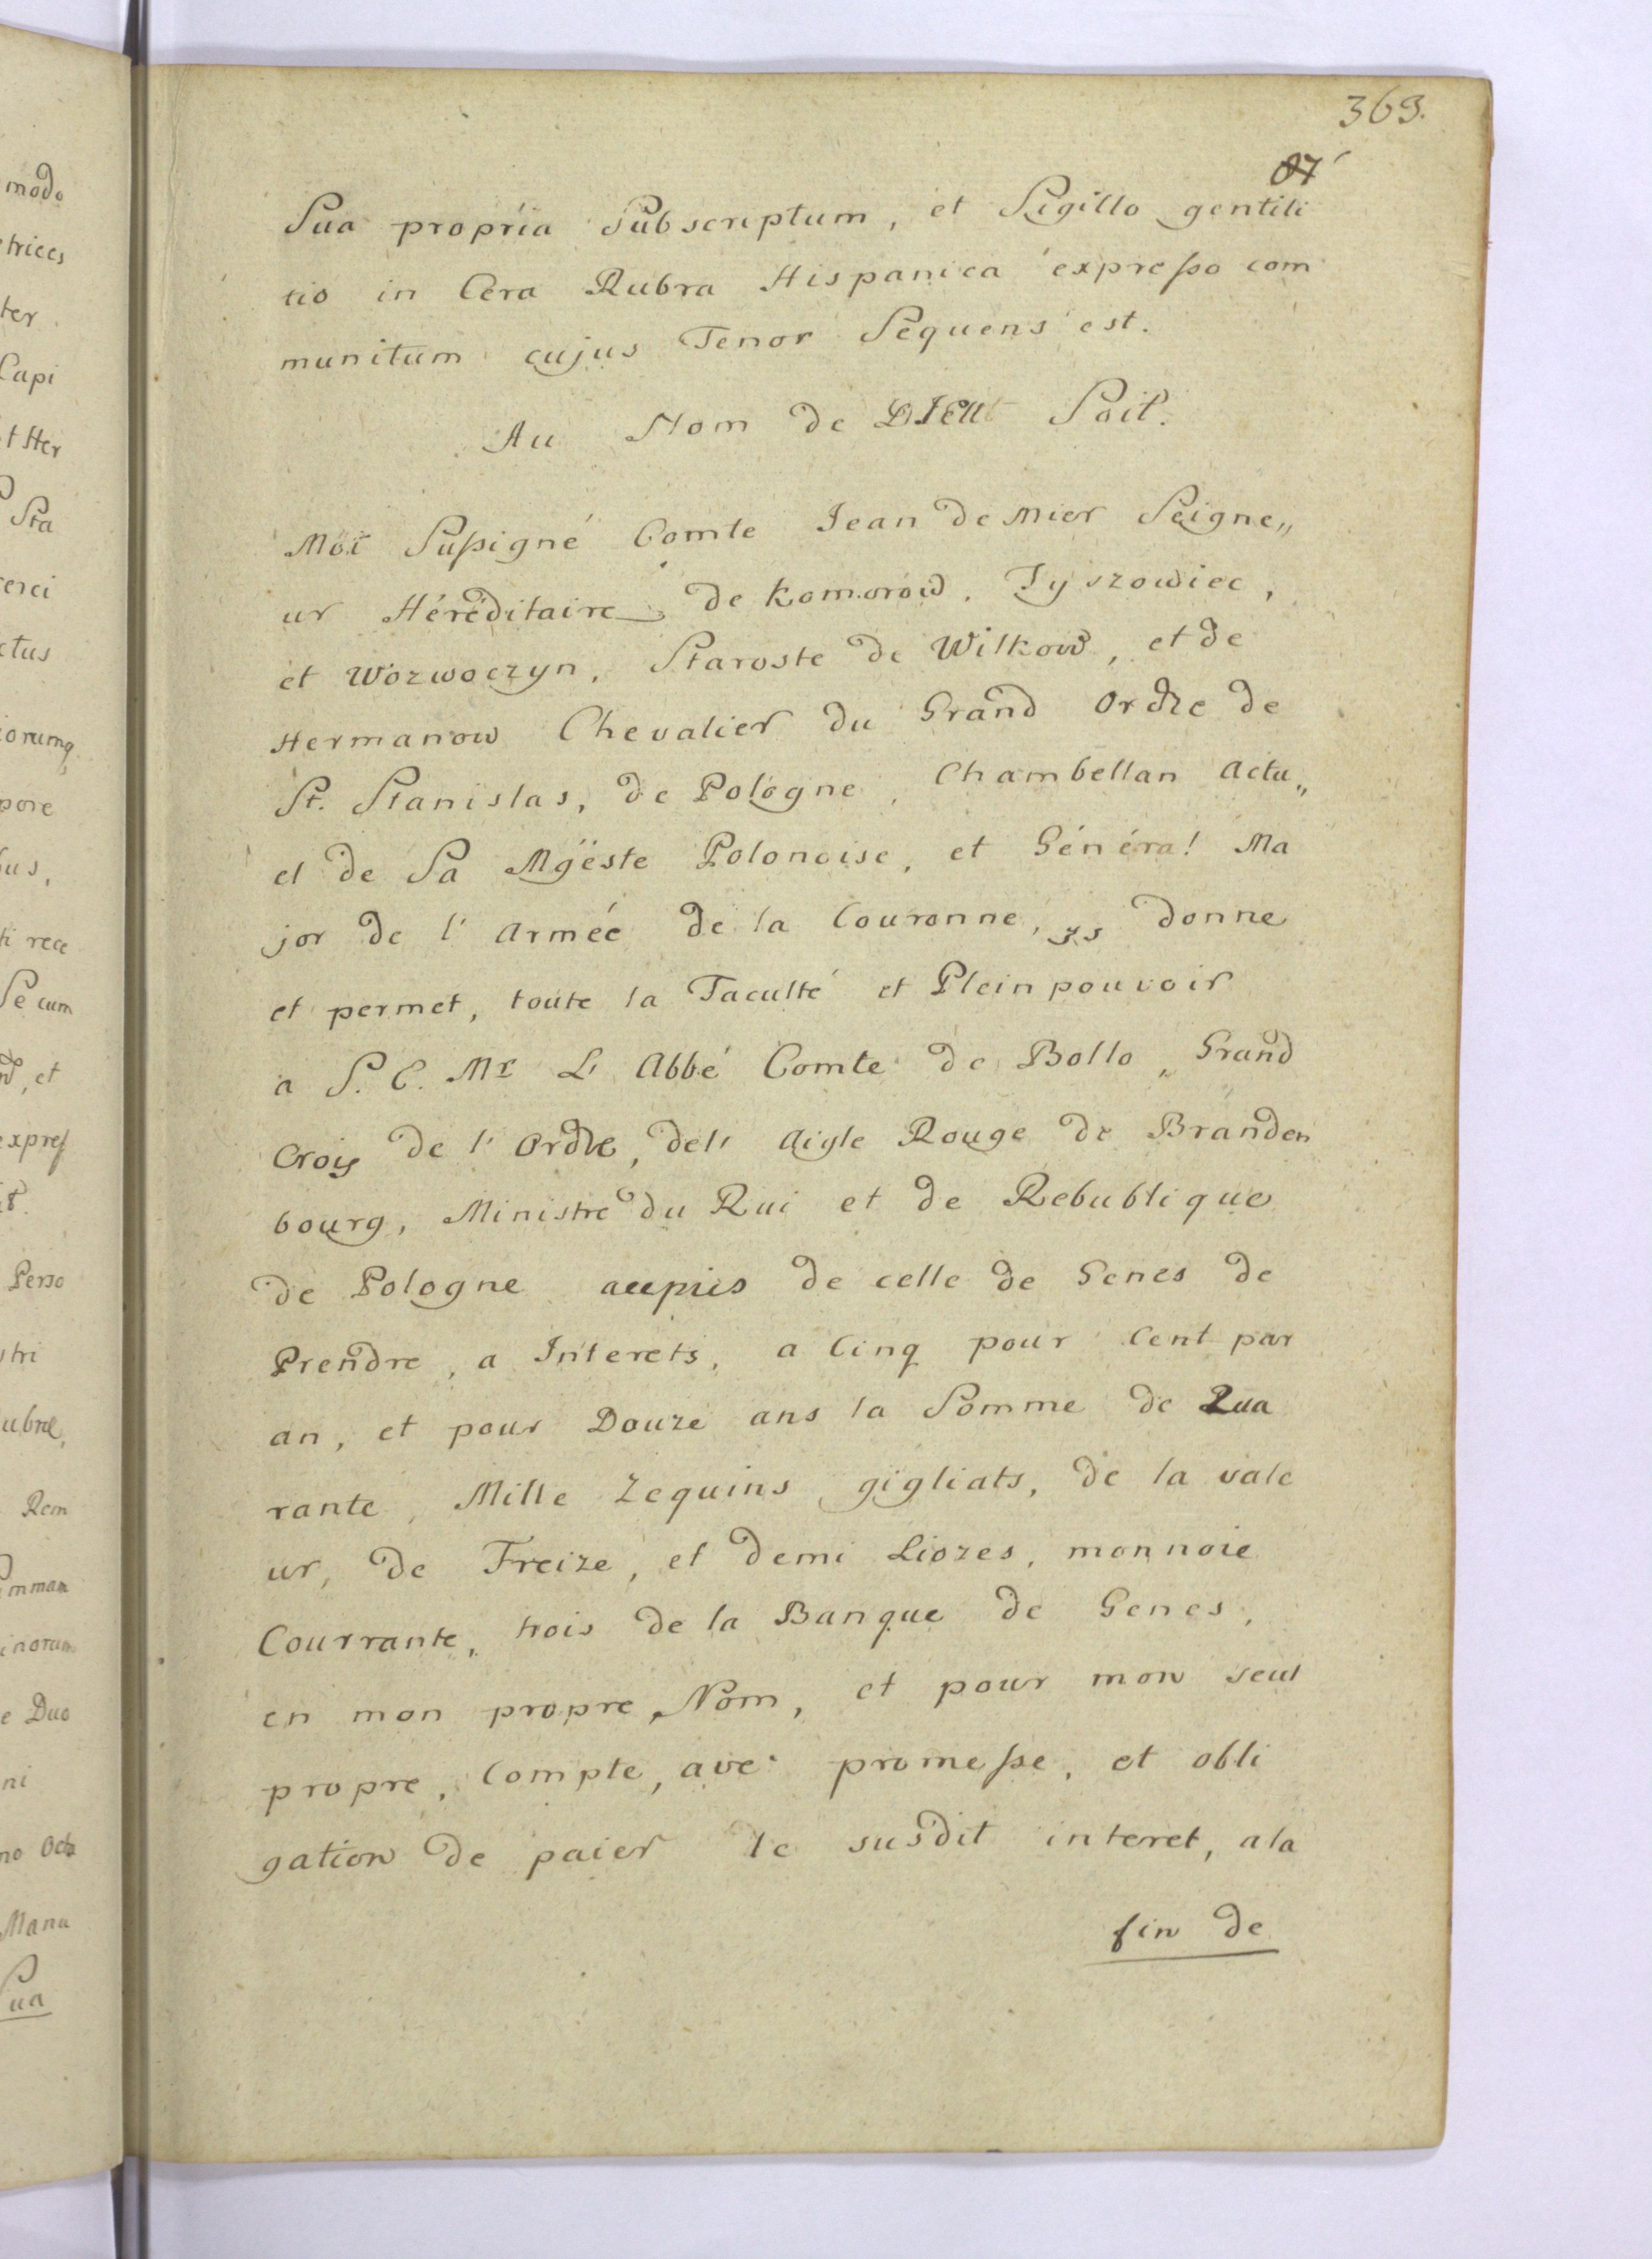 modo
trices
ter
Capi
t Her
Sta
cerci
ctus
iorumq
pore
bus,
ti rece
Se cum
nd, et
expreſ
Perso
stri
ubræ,
Rem
mman
inorum
e Duo
ni
no Octo
Manu
Sua
369.
Sua propria Subscriptum, et Sigillo gentili
tio in Cera Rubra Hispanica expreſso com
munitum cujus Tenor Sequens est.
Au Nom de DIEU Soit.
Moi Suſsigné Comte Jean de Mier Seigne„
ur Héréditaire de Komorow. Tyszowiec,
et Wozwoczyn, Staroste de Wilkow, et de
Hermanow Chevalier du Grand Ordre de
St. Stanislas, de Pologne, Chambellan Actu„
el de Sa Mgëste Polonoise, et Général Ma
jor de l' Armée de la Couronne, donne
et permet, toute la Faculté et Plein pouvoir
a S. E. Mr L' Abbé Comte de Bollo, Grand
Crois de l' Ordre, del' Aigle Rouge de Branden
bourg, Ministre du Rui et de Rebublique
de Pologne aupies de celle de Genes de
Prendre, a Interets, a Cinq pour Cent par
an, et pour Douze ans la Somme de Qua
rante, Mille Zequins gigliats, de la vale
ur, de Treize, et demi Liozes, monnoie
Courrante, trois de la Banque de Genes,
en mon propre, Nom, et pour mon seul
propre, Compte, avec promeſse, et obli
gation de paier le susdit interet, a la
fin de